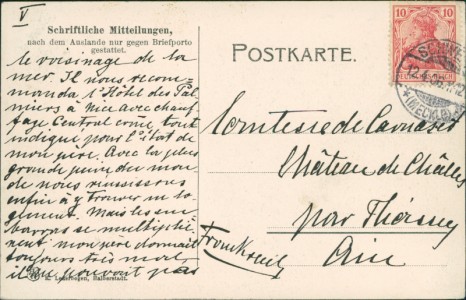 V
Schriftliche Mitteilungen,
nach dem Auslande nur gegen Briefporto
gestattet.
POSTKARTE.
10 10
le voisinage de la
mer. Il nous recom-
manda l'Hôtel des Pal-
miers à Nice avec chauf-
fage Central comme tout
indiqué pour l'état de
mon père. Avec la plus
grande peine du mon-
de nous réussissons
enfin à y trouver un lo-
gement. Mais les em-
barras se multipliè-
rent mon père dormait
toujours très mal,
il ne pouvait pas
Comtesse de
Château de Challes
par
Ain
Frankreich
Louis Koch, Halberstadt.